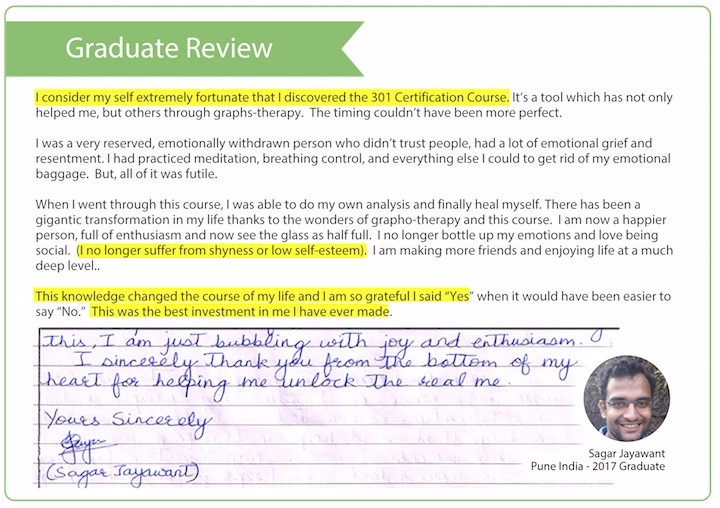 Graduate Review
I consider my self extremely fortunate that I discovered the 301 Certification Course. It's a tool which has not only
helped me, but others through graphs-therapy. The timing couldn't have been more perfect.
I was a very reserved, emotionally withdrawn person who didn't trust people, had a lot of emotional grief and
resentment. I had practiced meditation, breathing control, and everything else I could to get rid of my emotional
baggage. But, all of it was futile.
When I went through this course, I was able to do my own analysis and finally heal myself. There has been a
gigantic transformation in my life thanks to the wonders of grapho-therapy and this course. I am now a happier
person, full of enthusiasm and now see the glass as half full. I no longer bottle up my emotions and love being
social. (I no longer suffer from shyness or low self-esteem). I am making more friends and enjoying life at a much
deep level..
This knowledge changed the course of my life and I am so grateful I said "Yes" when it would have been easier to
say "No." This was the best investment in me I have ever made.
this, I am just bubbling with joy and enthusiasm.
I sincerely thank you from the bottom of my
heart for helping me unlock the real me.
Yours Sincerely
(Sagar Jayawant)
Sagar Jayawant
Pune India - 2017 Graduate